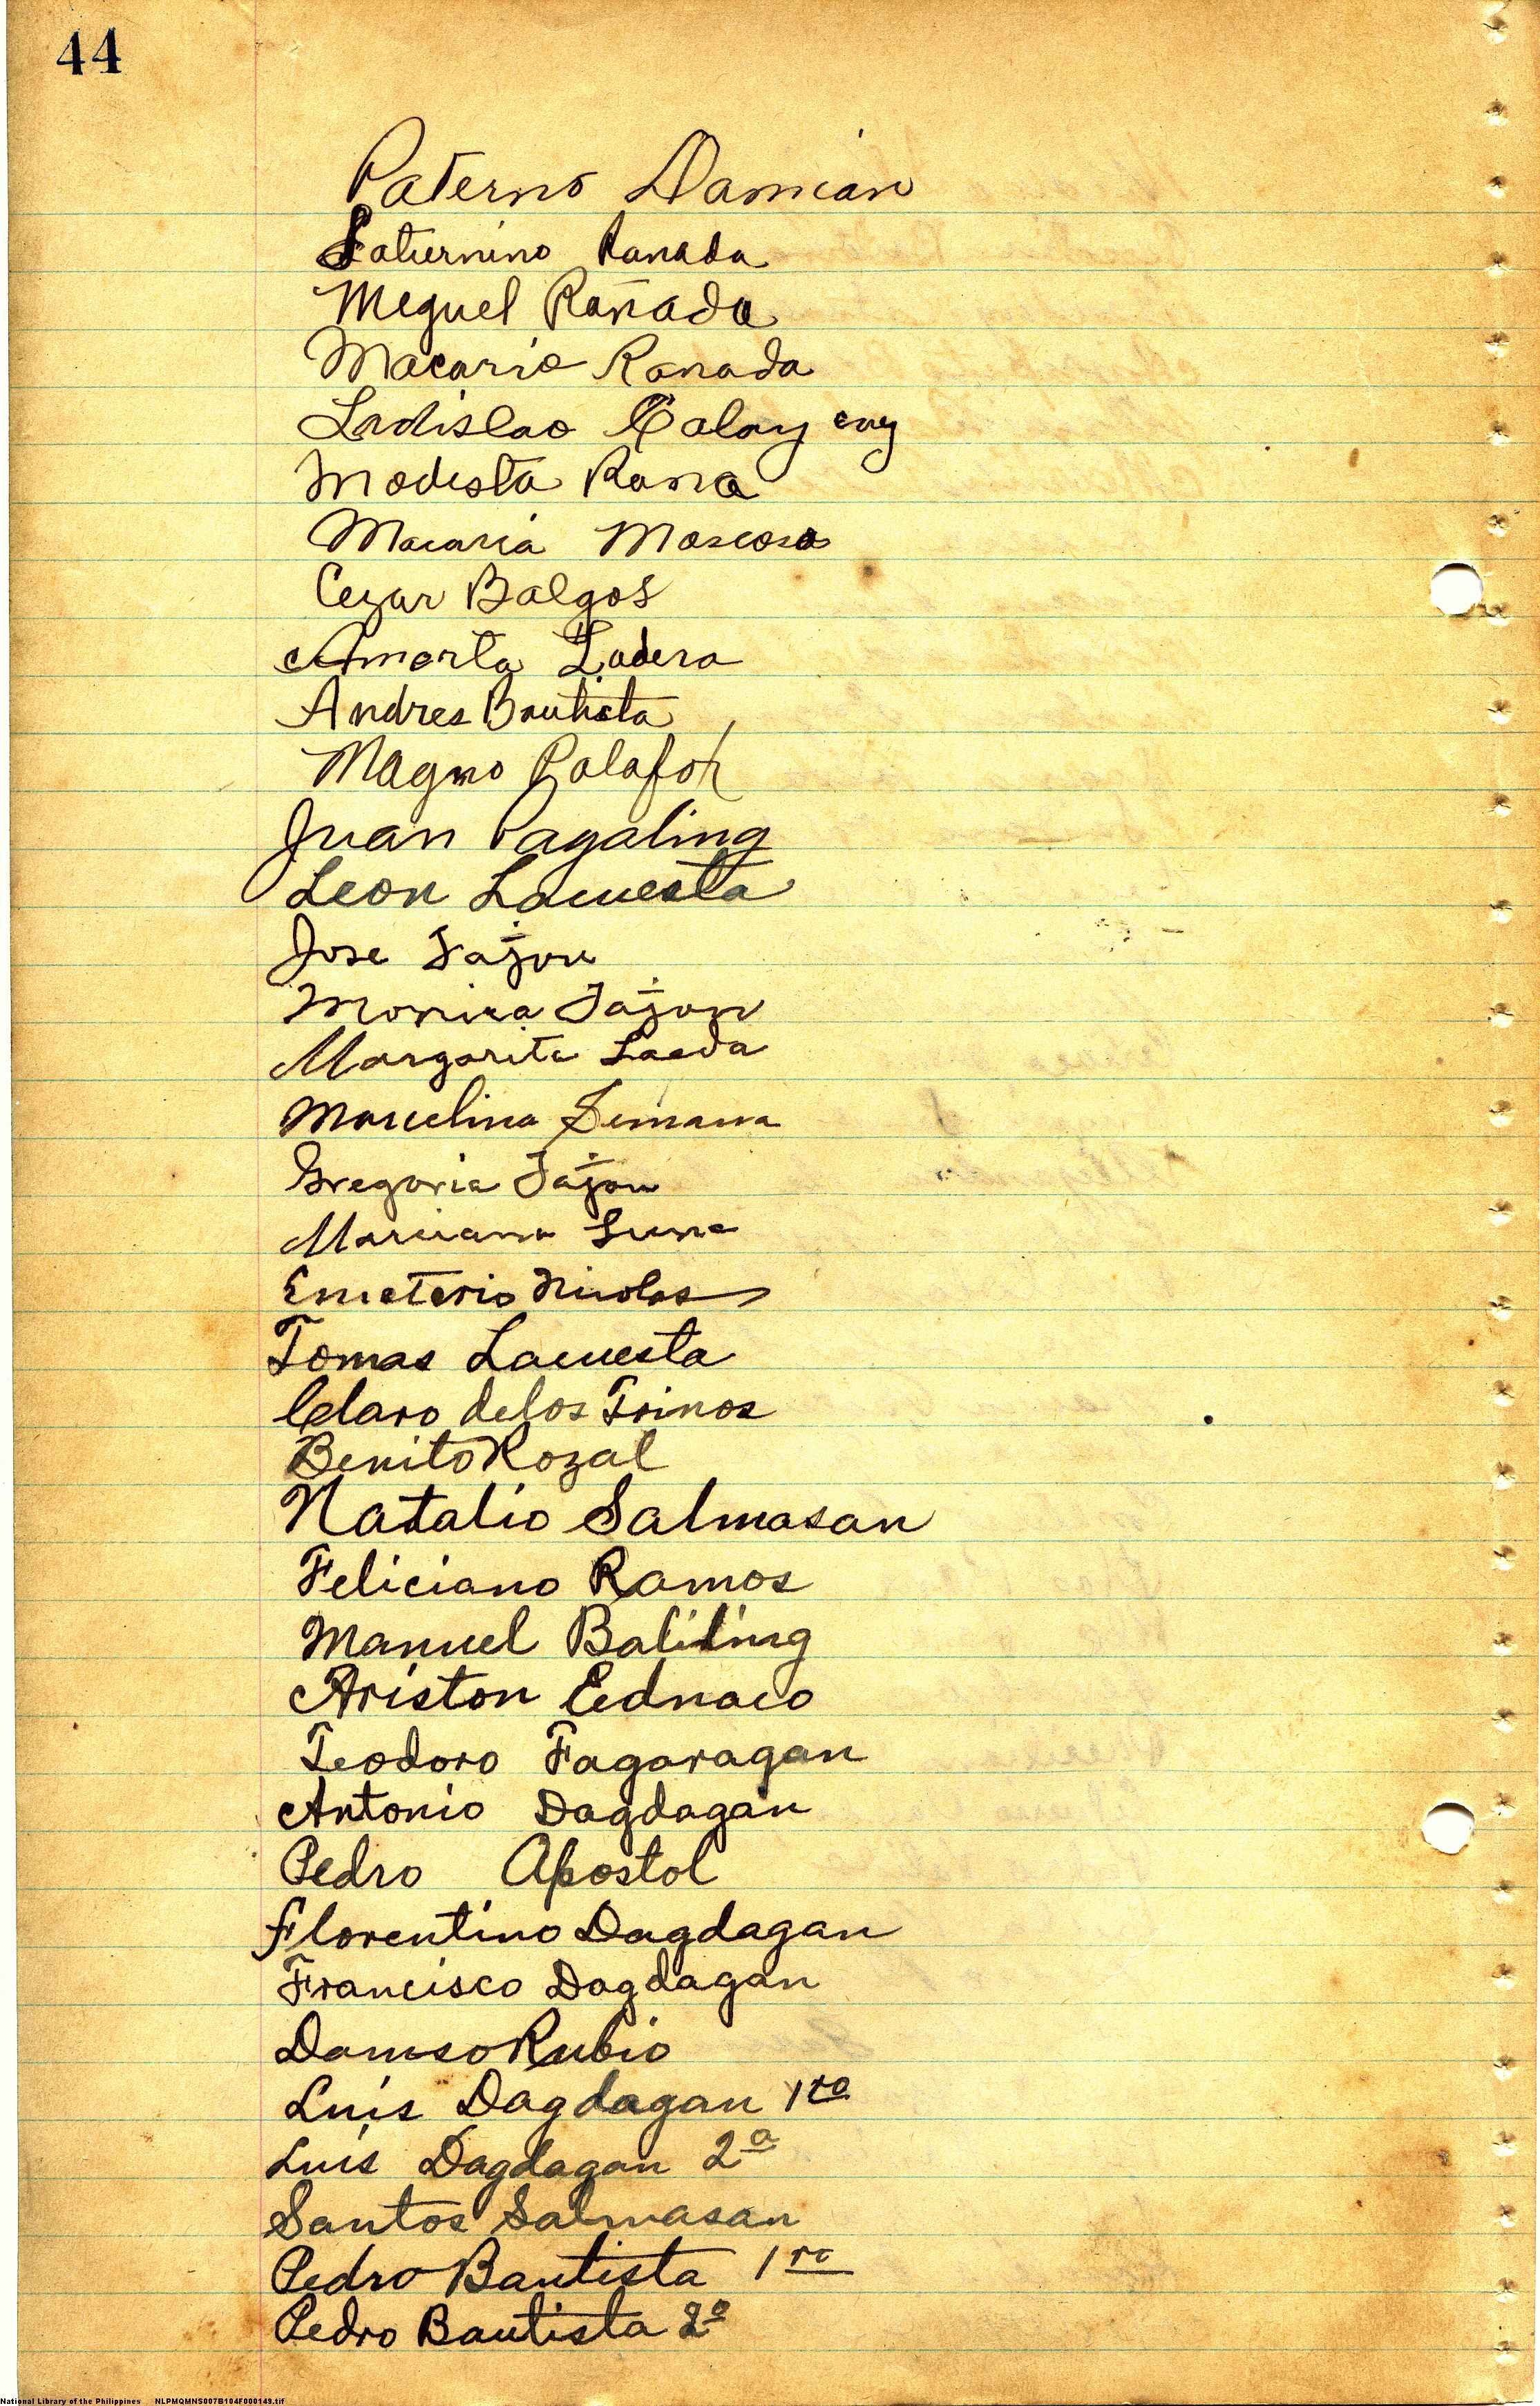 44
Paterno Damian
Saturnino Ranada
Meguel Rañada
Macario Ranada
Ladislao Calay cay
Modesta Rama
Macaria Moscoso
Cezar Balgos
Amarta Ladera
Andres Bautista
Magno Palafox
Juan Pagaling
Leon Lacuesta
Jose Jajon
Monica Jajon
Margarita Laeda
Marcelina Semana
Gregoria Jajon
Marciana Luna
Emeterio Nicolas
Tomas Lacuesta
Claro delos Trinos
Benito Rozal
Natalio Salmasan
Feliciano Ramos
Manuel Baliling
Ariston Ednaco
Teodoro Fagaragan
Antonio Dagdagan
Pedro Apostol
Florentino Dagdagan
Francisco Dagdagan
Damso Rubio
Luis Dagdagan 1ro
Luis Dagdagan 2a
Santos Salmasan
Pedro Bautista 1ro
Pedro Bautista 2o
National Library of the Philippines NLPMQMNS007B104F000149.tif